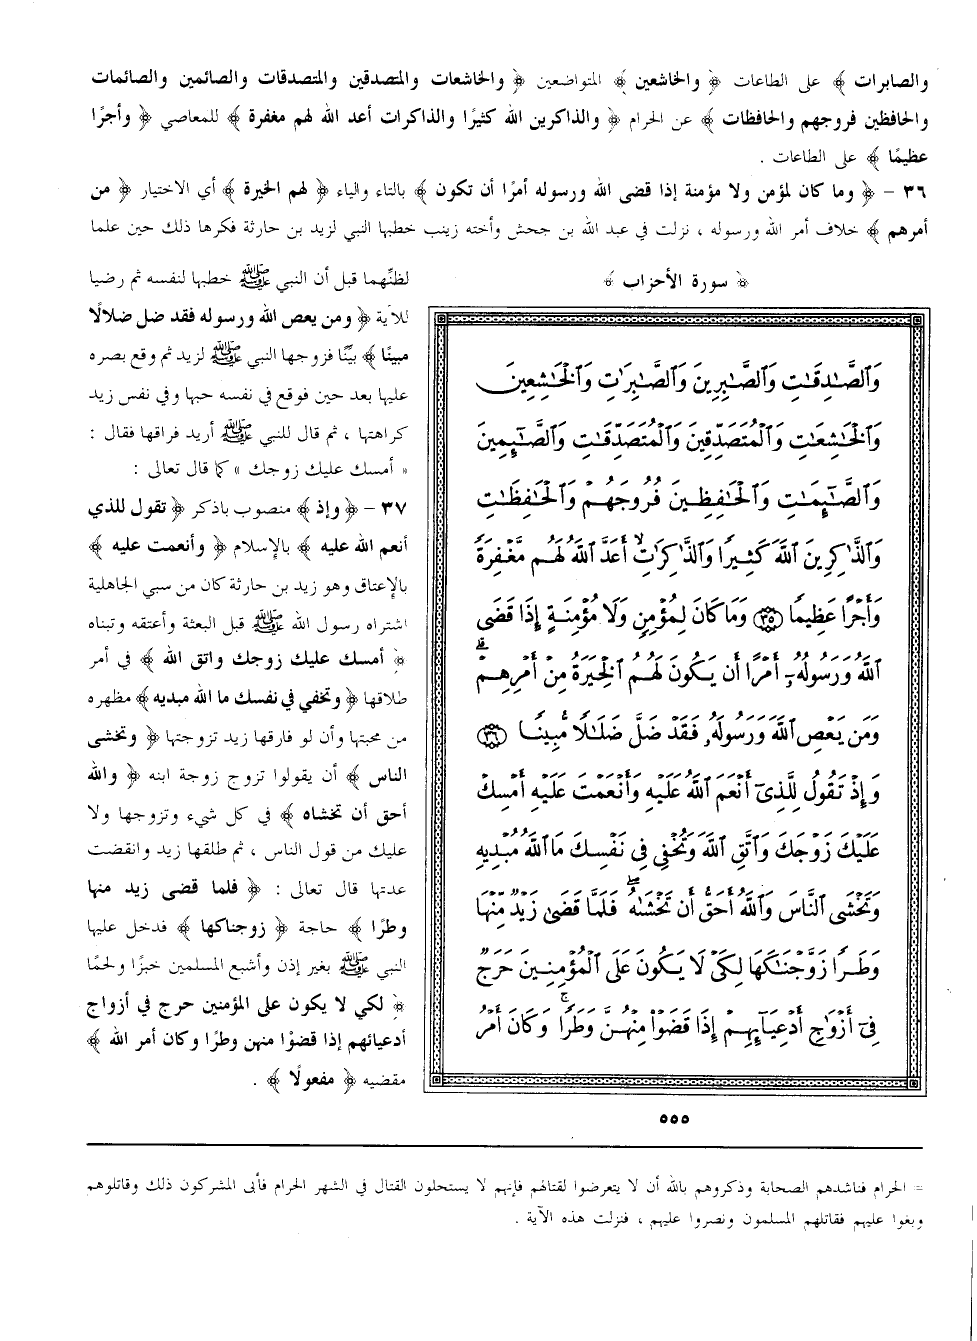 والصابرات ﴾ على الطاعات ﴿ والخاشعين ﴾ المتواضعين ﴿ والخاشعات والمتصدقين والمتصدقات والصائمين والصائمات
والحافظين فروجهم والحافظات ﴾ عن الحرام ﴿ والذاكرين الله كثيرًا والذاكرات أعد الله لهم مغفرة ﴾ للمعاصي ﴿ وأجرًا
عظيمًا ﴾ على الطاعات .
٣٦ - ﴿ وما كان لمؤمن ولا مؤمنة إذا قضى الله ورسوله أمرًا أن تكون ﴾ بالتاء والياء ﴿ لهم الخيرة ﴾ أي الاختيار ﴿ من
أمرهم ﴾ خلاف أمر الله ورسوله ، نزلت في عبد الله بن جحش وأخته زينب خطبها النبي لزيد بن حارثة فكرها ذلك حين علما
لظنِّهما قبل أن النبي ﷺ خطبها لنفسه ثم رضيا
للآية ﴿ ومن يعص الله ورسوله فقد ضل ضلالًا
مبينًا ﴾ بيِّنًا فزوجها النبي ﷺ لزيد ثم وقع بصره
عليها بعد حين فوقع في نفسه حبها وفي نفس زيد
كراهتها ، ثم قال للنبي ﷺ أريد فراقها فقال :
« أمسك عليك زوجك » كما قال تعالى :
٣٧ - ﴿ وإذ ﴾ منصوب باذكر ﴿ تقول للذي
أنعم الله عليه ﴾ بالإسلام ﴿ وأنعمت عليه ﴾
بالإعتاق وهو زيد بن حارثة كان من سبي الجاهلية
اشتراه رسول الله ﷺ قبل البعثة وأعتقه وتبناه
﴿ أمسك عليك زوجك واتق الله ﴾ في أمر
طلاقها ﴿ وتخفي في نفسك ما الله مبديه ﴾ مظهره
من محبتها وأن لو فارقها زيد تزوجتها ﴿ وتخشى
الناس ﴾ أن يقولوا تزوج زوجة ابنه ﴿ والله
أحق أن تخشاه ﴾ في كل شيء وتزوجها ولا
عليك من قول الناس ، ثم طلقها زيد وانقضت
عدتها قال تعالى : ﴿ فلما قضى زيد منها
وطرًا ﴾ حاجة ﴿ زوجناكها ﴾ فدخل عليها
النبي ﷺ بغير إذن وأشبع المسلمين خبزًا ولحمًا
﴿ لكي لا يكون على المؤمنين حرج في أزواج
أدعيائهم إذا قضوْا منهن وطرًا وكان أمر الله ﴾
مقضيه ﴿ مفعولًا ﴾ .
﴿ سورة الأحزاب ﴾
وَٱلصَّـٰدِقَـٰتِ وَٱلصَّـٰبِرِينَ وَٱلصَّـٰبِرَٰتِ وَٱلْخَـٰشِعِينَ
وَٱلْخَـٰشِعَـٰتِ وَٱلْمُتَصَدِّقِينَ وَٱلْمُتَصَدِّقَـٰتِ وَٱلصَّـٰٓئِمِينَ
وَٱلصَّـٰٓئِمَـٰتِ وَٱلْحَـٰفِظِينَ فُرُوجَهُمْ وَٱلْحَـٰفِظَـٰتِ
وَٱلذَّٰكِرِينَ ٱللَّهَ كَثِيرًا وَٱلذَّٰكِرَٰتِ أَعَدَّ ٱللَّهُ لَهُم مَّغْفِرَةً
وَأَجْرًا عَظِيمًا ﴿٣٥﴾ وَمَا كَانَ لِمُؤْمِنٍ وَلَا مُؤْمِنَةٍ إِذَا قَضَى
ٱللَّهُ وَرَسُولُهُۥٓ أَمْرًا أَن يَكُونَ لَهُمُ ٱلْخِيَرَةُ مِنْ أَمْرِهِمْ ۗ
وَمَن يَعْصِ ٱللَّهَ وَرَسُولَهُۥ فَقَدْ ضَلَّ ضَلَـٰلًا مُّبِينًا ﴿٣٦﴾
وَإِذْ تَقُولُ لِلَّذِىٓ أَنْعَمَ ٱللَّهُ عَلَيْهِ وَأَنْعَمْتَ عَلَيْهِ أَمْسِكْ
عَلَيْكَ زَوْجَكَ وَٱتَّقِ ٱللَّهَ وَتُخْفِى فِى نَفْسِكَ مَا ٱللَّهُ مُبْدِيهِ
وَتَخْشَى ٱلنَّاسَ وَٱللَّهُ أَحَقُّ أَن تَخْشَىٰهُ ۖ فَلَمَّا قَضَىٰ زَيْدٌ مِّنْهَا
وَطَرًا زَوَّجْنَـٰكَهَا لِكَىْ لَا يَكُونَ عَلَى ٱلْمُؤْمِنِينَ حَرَجٌ
فِىٓ أَزْوَٰجِ أَدْعِيَآئِهِمْ إِذَا قَضَوْا۟ مِنْهُنَّ وَطَرًا ۚ وَكَانَ أَمْرُ
٥٥٥
= الحرام فناشدهم الصحابة وذكروهم بالله أن لا يتعرضوا لقتالهم فإنهم لا يستحلون القتال في الشهر الحرام فأبى المشركون ذلك وقاتلوهم
وبغوا عليهم فقاتلهم المسلمون ونصروا عليهم ، فنزلت هذه الآية .